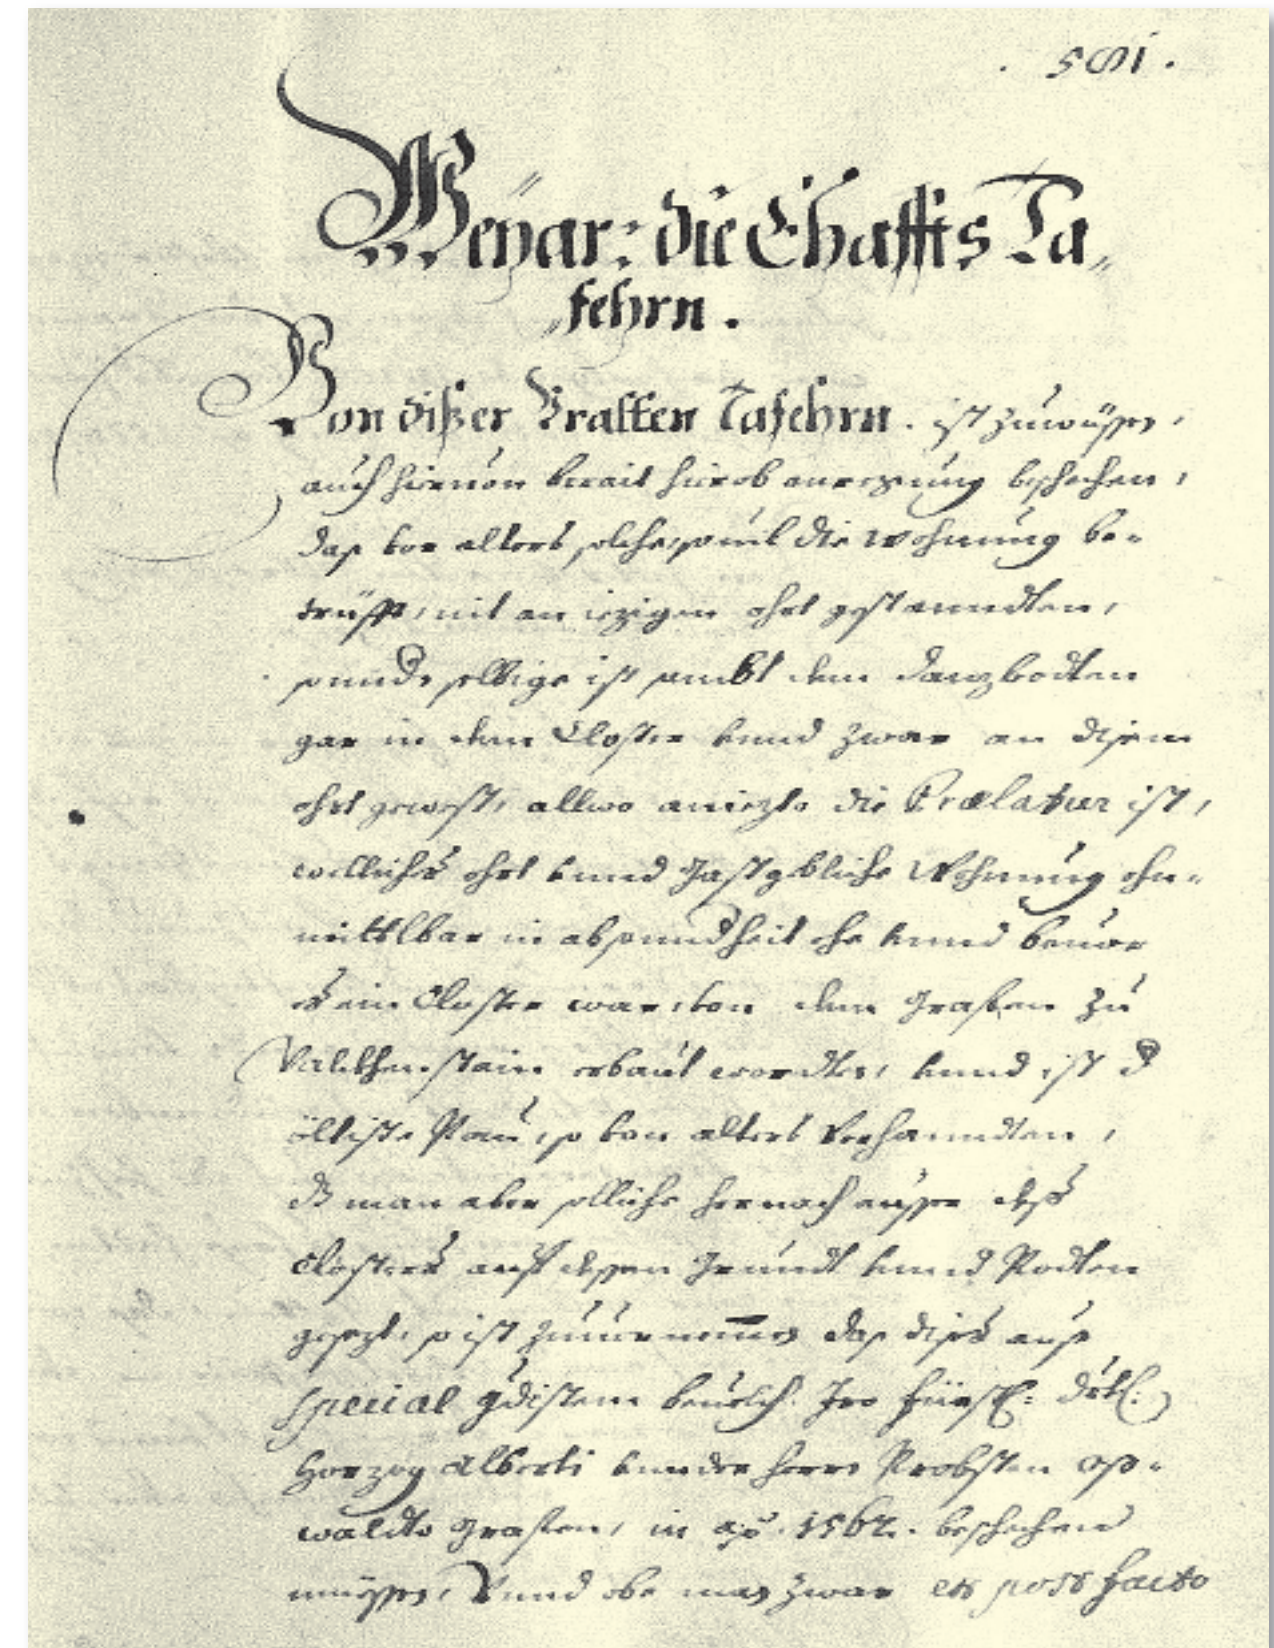 . 581 .
Weyar: die Ehaffts Ta„
„fehrn .
Von dißer Vralten Tafehrn . ist zuwüssen,
auch hieruon berait hierob anregung beschechen,
daß vor alters solche, souil die Wohnung be-
trüfft, nit an iezigen ohrt gestanndten,
sonnd. selbige ist sambt dem Danzbodten
gar in dem Closter vnnd zwar an disem
ohrt gewest, allwo aniezto die Prælatur ist,
welliches ohrt vnnd Gastgebliche Wohnung ohn-
mittlbar in absonndheit ehe vnnd beuor
es ein Closter war, von dem Grafen zu
Valckhenstain erbaut wordten, vnnd ist d
öltiste Pau, so von alters verhanndten,
dz man aber solliche hernach ausser deß
Closters auf dessen Grundt vnnd Podten
gesezt, so ist zuuernemen daß dises auß
special gdistem beuelch Iro Fürstl: Drtl:
Herzog Alberti vnnder herrn Probsten Oß-
waldto Grasten, in ao. 1562. beschechen
müssen, Vnnd obe man zwar ex post facto